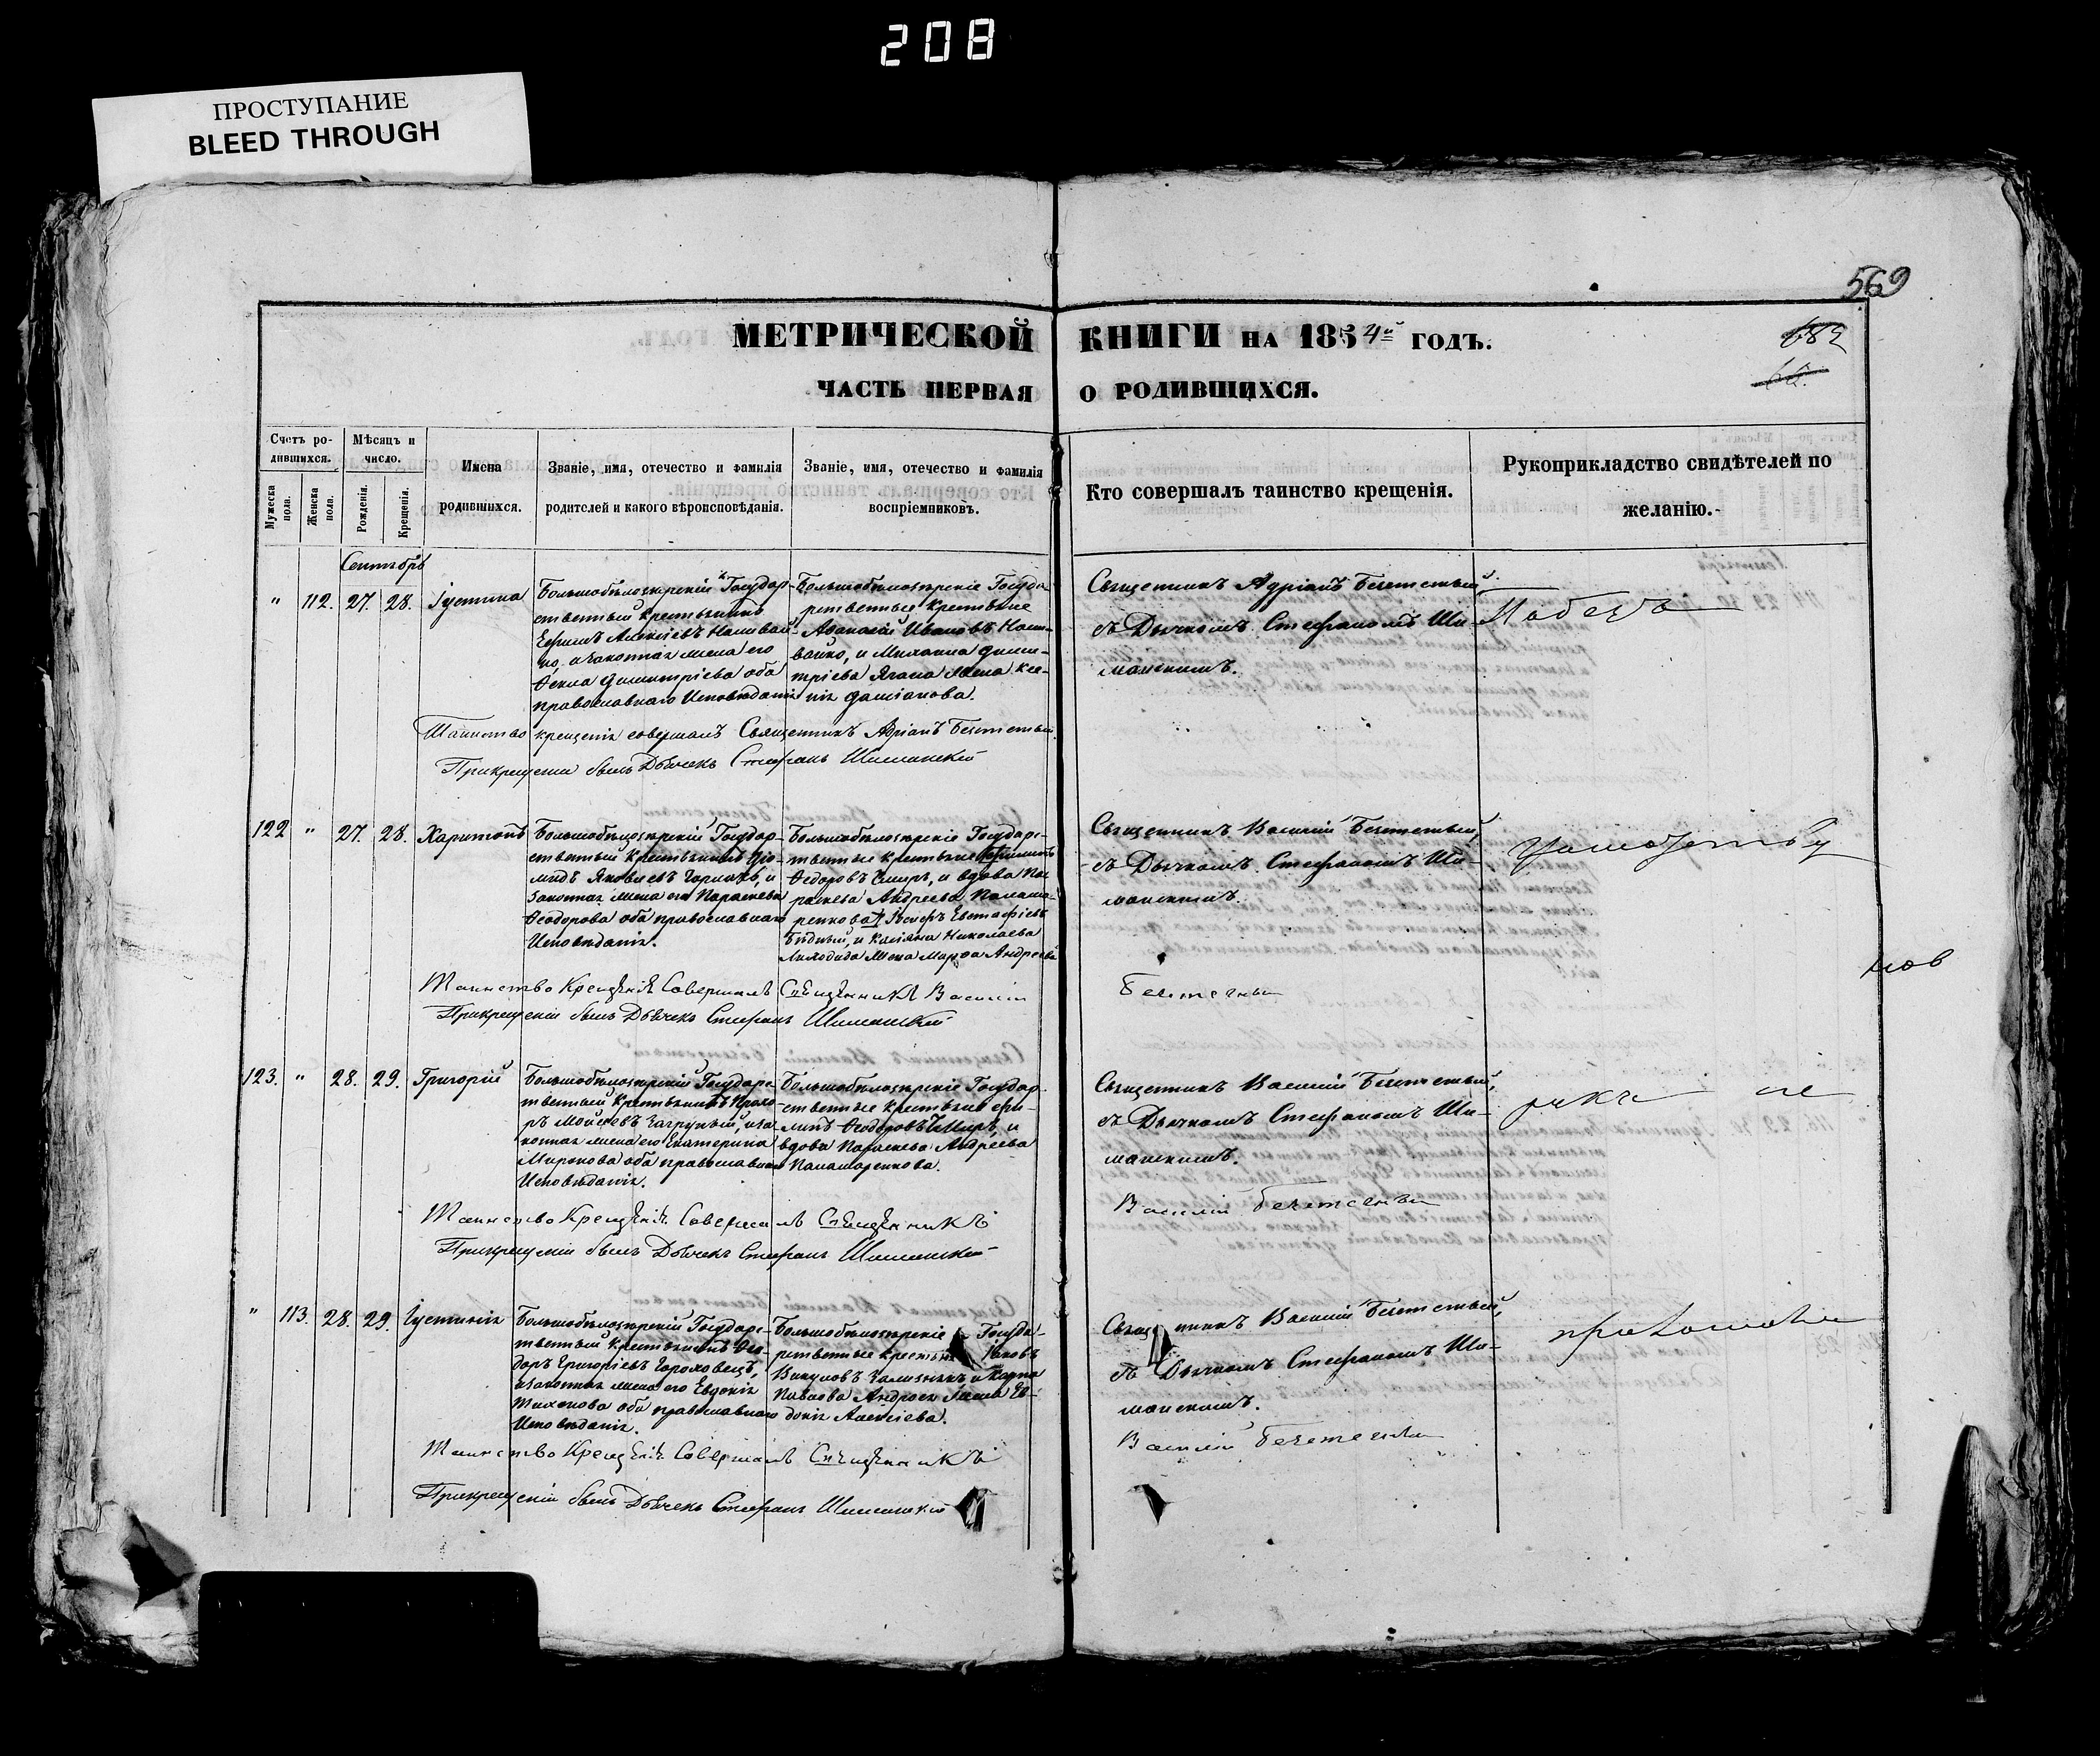 208
ПРОСТУПАНИЕ
BLEED THROUGH
569
МЕТРИЧЕСКОЙ КНИГИ НА 1854й ГОДЪ.
ЧАСТЬ ПЕРВАЯ О РОДИВШИХСЯ.
Счетъ ро-
дившихся.
Мужеска пола.
Женска пола.
Мѣсяцъ и
число.
Рожденія.
Крещенія.
Имена
родившихся.
Званіе, имя, отечество и фамилія
родителей и какого вѣроисповѣданія.
Званіе, имя, отечество и фамилія
воспріемниковъ.
Кто совершалъ таинство крещенія.
Рукоприкладство свидѣтелей по
желанію.
Сентябрь
" 112. 27. 28. Іустина
Большобѣлозерскій Государ-
ственный крестьянинъ
Ефимъ Алексіевъ Наливай-
ко, и законная жена его
Ѳекла Димитріева оба
православнаго Исповѣданія
Большобѣлозерскіе Госуда-
рственные крестьяне
Аѳанасій Ивановъ Нали-
вайко, и Михаила Дими-
тріева Ягана жена Ксе-
нія Даміанова.
Священникъ Адріанъ
съ Дьячкомъ Стефаномъ Ши-
манскимъ.
Таинство крещенія совершалъ Священникъ Адріанъ
При крещеніи былъ Дьячекъ Стефанъ Шиманскій
122 " 27. 28. Харитонъ
Большобѣлозерскій Государ-
ственный крестьянинъ Діо-
мидъ Яковлевъ и
законная жена его Параскева
Ѳеодорова оба православнаго
Исповѣданія.
Большобѣлозерскіе Государс-
твенные крестьяне Филиппъ
Ѳедоровъ Чмиръ, и вдова Па-
раскева Андреева Палама-
ренкова, Іосифъ Евстафіевъ
Бѣдный, и Касіяна Николаева
жена Марѳа Андреева
Священникъ Василій
съ Дьячкомъ Стефаномъ Ши-
манскимъ.
Таинство Крещенія Совершалъ Священникъ Василій
При крещеніи былъ Дьячекъ Стефанъ Шиманскій
123. " 28. 29. Григорій
Большобѣлозерскій Государс-
твенный крестьянинъ Прохо-
ръ Мойсеевъ Загруный, и за-
конная жена его Екатерина
Миронова оба православнаго
Исповѣданія.
Большобѣлозерскіе Государ-
ственные крестьяне Фи-
липъ Ѳеодоровъ Чмиръ, и
вдова Параскева Андреева
Паламаренкова.
Священникъ Василій
съ Дьячкомъ Стефаномъ Ши-
манскимъ.
не
Таинство Крещенія Совершалъ Священникъ Василій
При крещеніи былъ Дьячекъ Стефанъ Шиманскій
" 113. 28. 29. Іустинія
Большобѣлозерскій Государс-
твенный крестьянинъ Ѳео-
доръ Григоріевъ Гороховецъ,
и законная жена его Евдокія
Тихонова оба православнаго
Исповѣданія.
Большобѣлозерскіе Госуда-
рственные крестьяне Іаковъ
Викуловъ и Карпа
Павлова Андроса жена Ев-
докія Алексіева.
Священникъ Василій
съ Дьячкомъ Стефаномъ Ши-
манскимъ.
Таинство Крещенія Совершалъ Священникъ Василій
При крещеніи былъ Дьячекъ Стефанъ Шиманскій